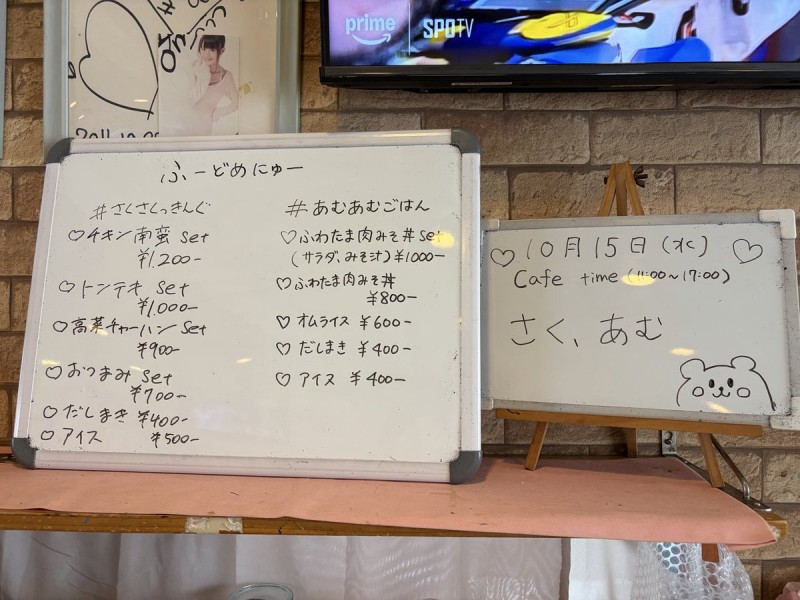 prime
SPOTV
ふーどめにゅー
#さくさくっきんぐ
♡チキン南蛮 Set
¥1,200-
♡トンテキ Set
¥1,000-
♡高菜チャーハン Set
¥900-
♡おつまみ Set
¥700-
♡だしまき ¥400-
♡アイス ¥500-
#あむあむごはん
♡ふわたま肉みそ丼 Set
(サラダ、みそ汁) ¥1000-
♡ふわたま肉みそ丼
¥800-
♡オムライス ¥600-
♡だしまき ¥400-
♡アイス ¥400-
♡10月15日(水)♡
Cafe time (11:00~17:00)
さく、あむ